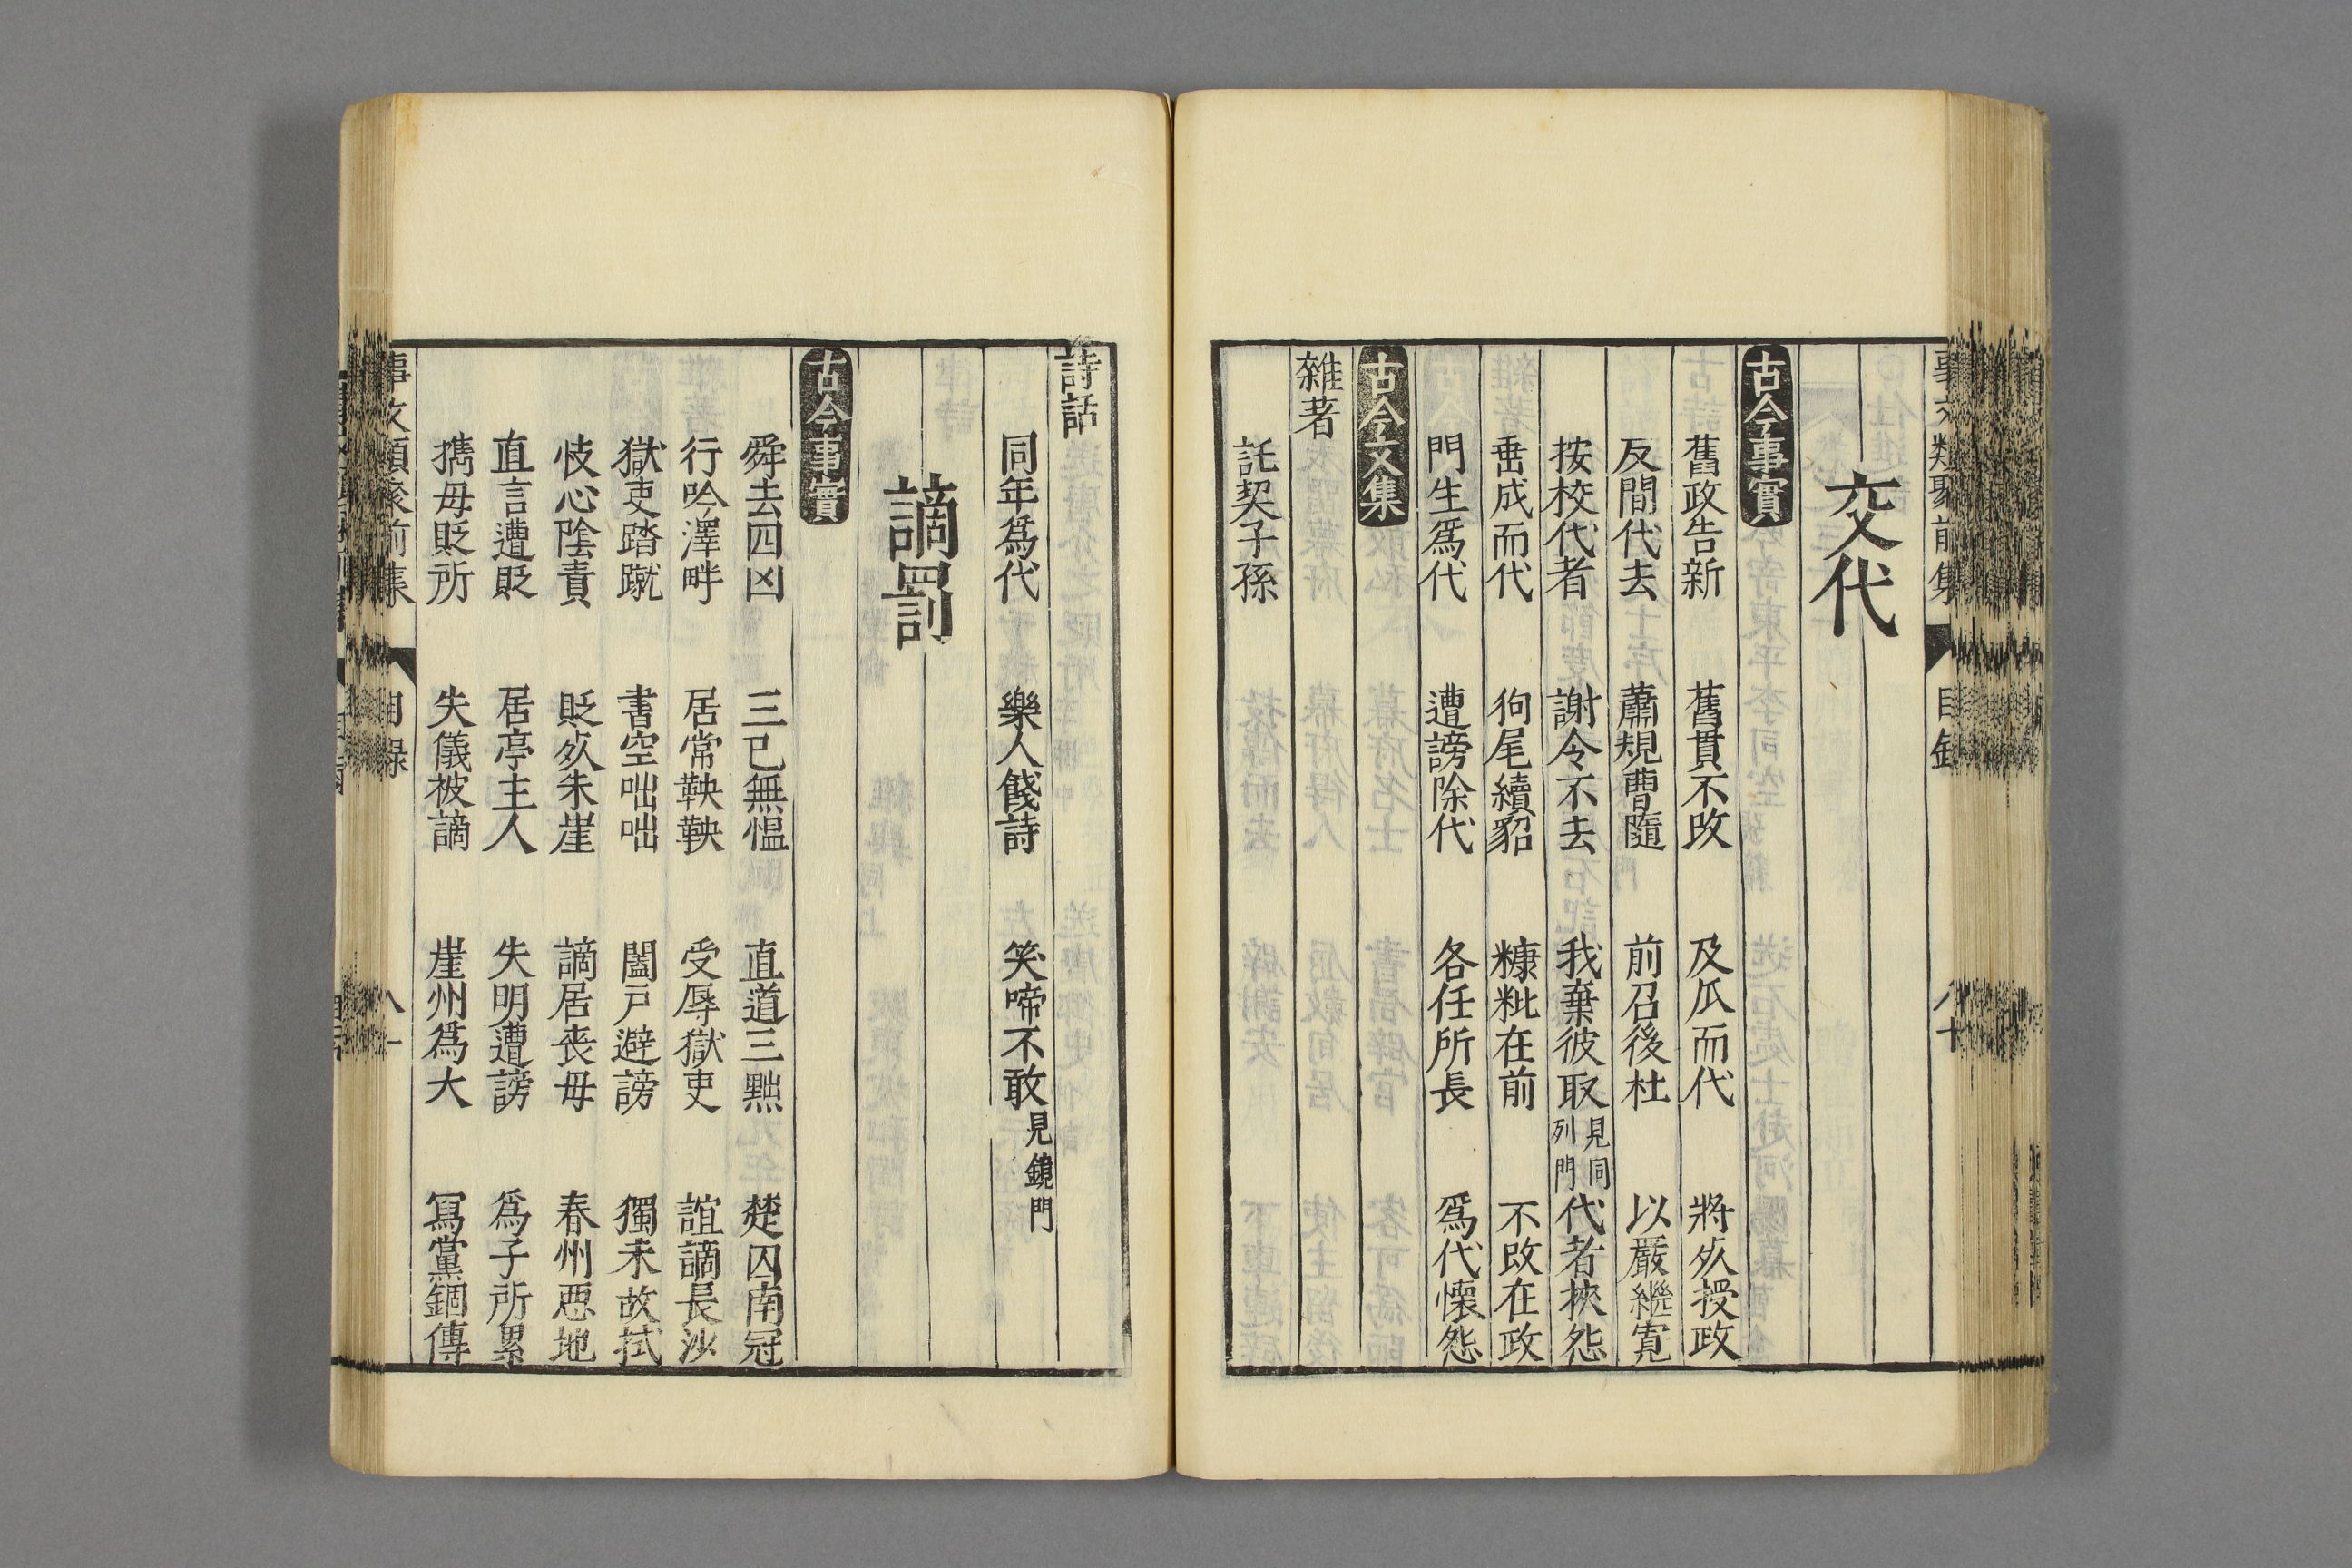 事文類聚前集 目錄 八十
交代
古今事實
舊政告新 舊貫不改 及瓜而代 將㱕授政
反間代去 蕭規曹隨 前召後杜 以嚴繼寬
按校代者 謝令不去 我棄彼取見同列門 代者挾怨
垂成而代 狗尾續貂 糠粃在前 不改在政
門生爲代 遭謗除代 各任所長 爲代懷怨
古今文集
雜著
託契子孫
詩話
同年爲代 樂人餞詩 笑啼不敢見鏡門
謫罰
古今事實
舜去四凶 三已無愠 直道三黜 楚囚南冠
行吟澤畔 居常鞅鞅 受辱獄吏 誼謫長沙
獄吏踏蹴 書空咄咄 闔戸避謗 獨未故拭
忮心陰責 貶㱕朱崖 謫居丧母 春州惡地
直言遭貶 居亭主人 失明遭謗 爲子所累
携母貶所 失儀被謫 崖州爲大 冩黨錮傳
事文類聚前集 目錄 八十一